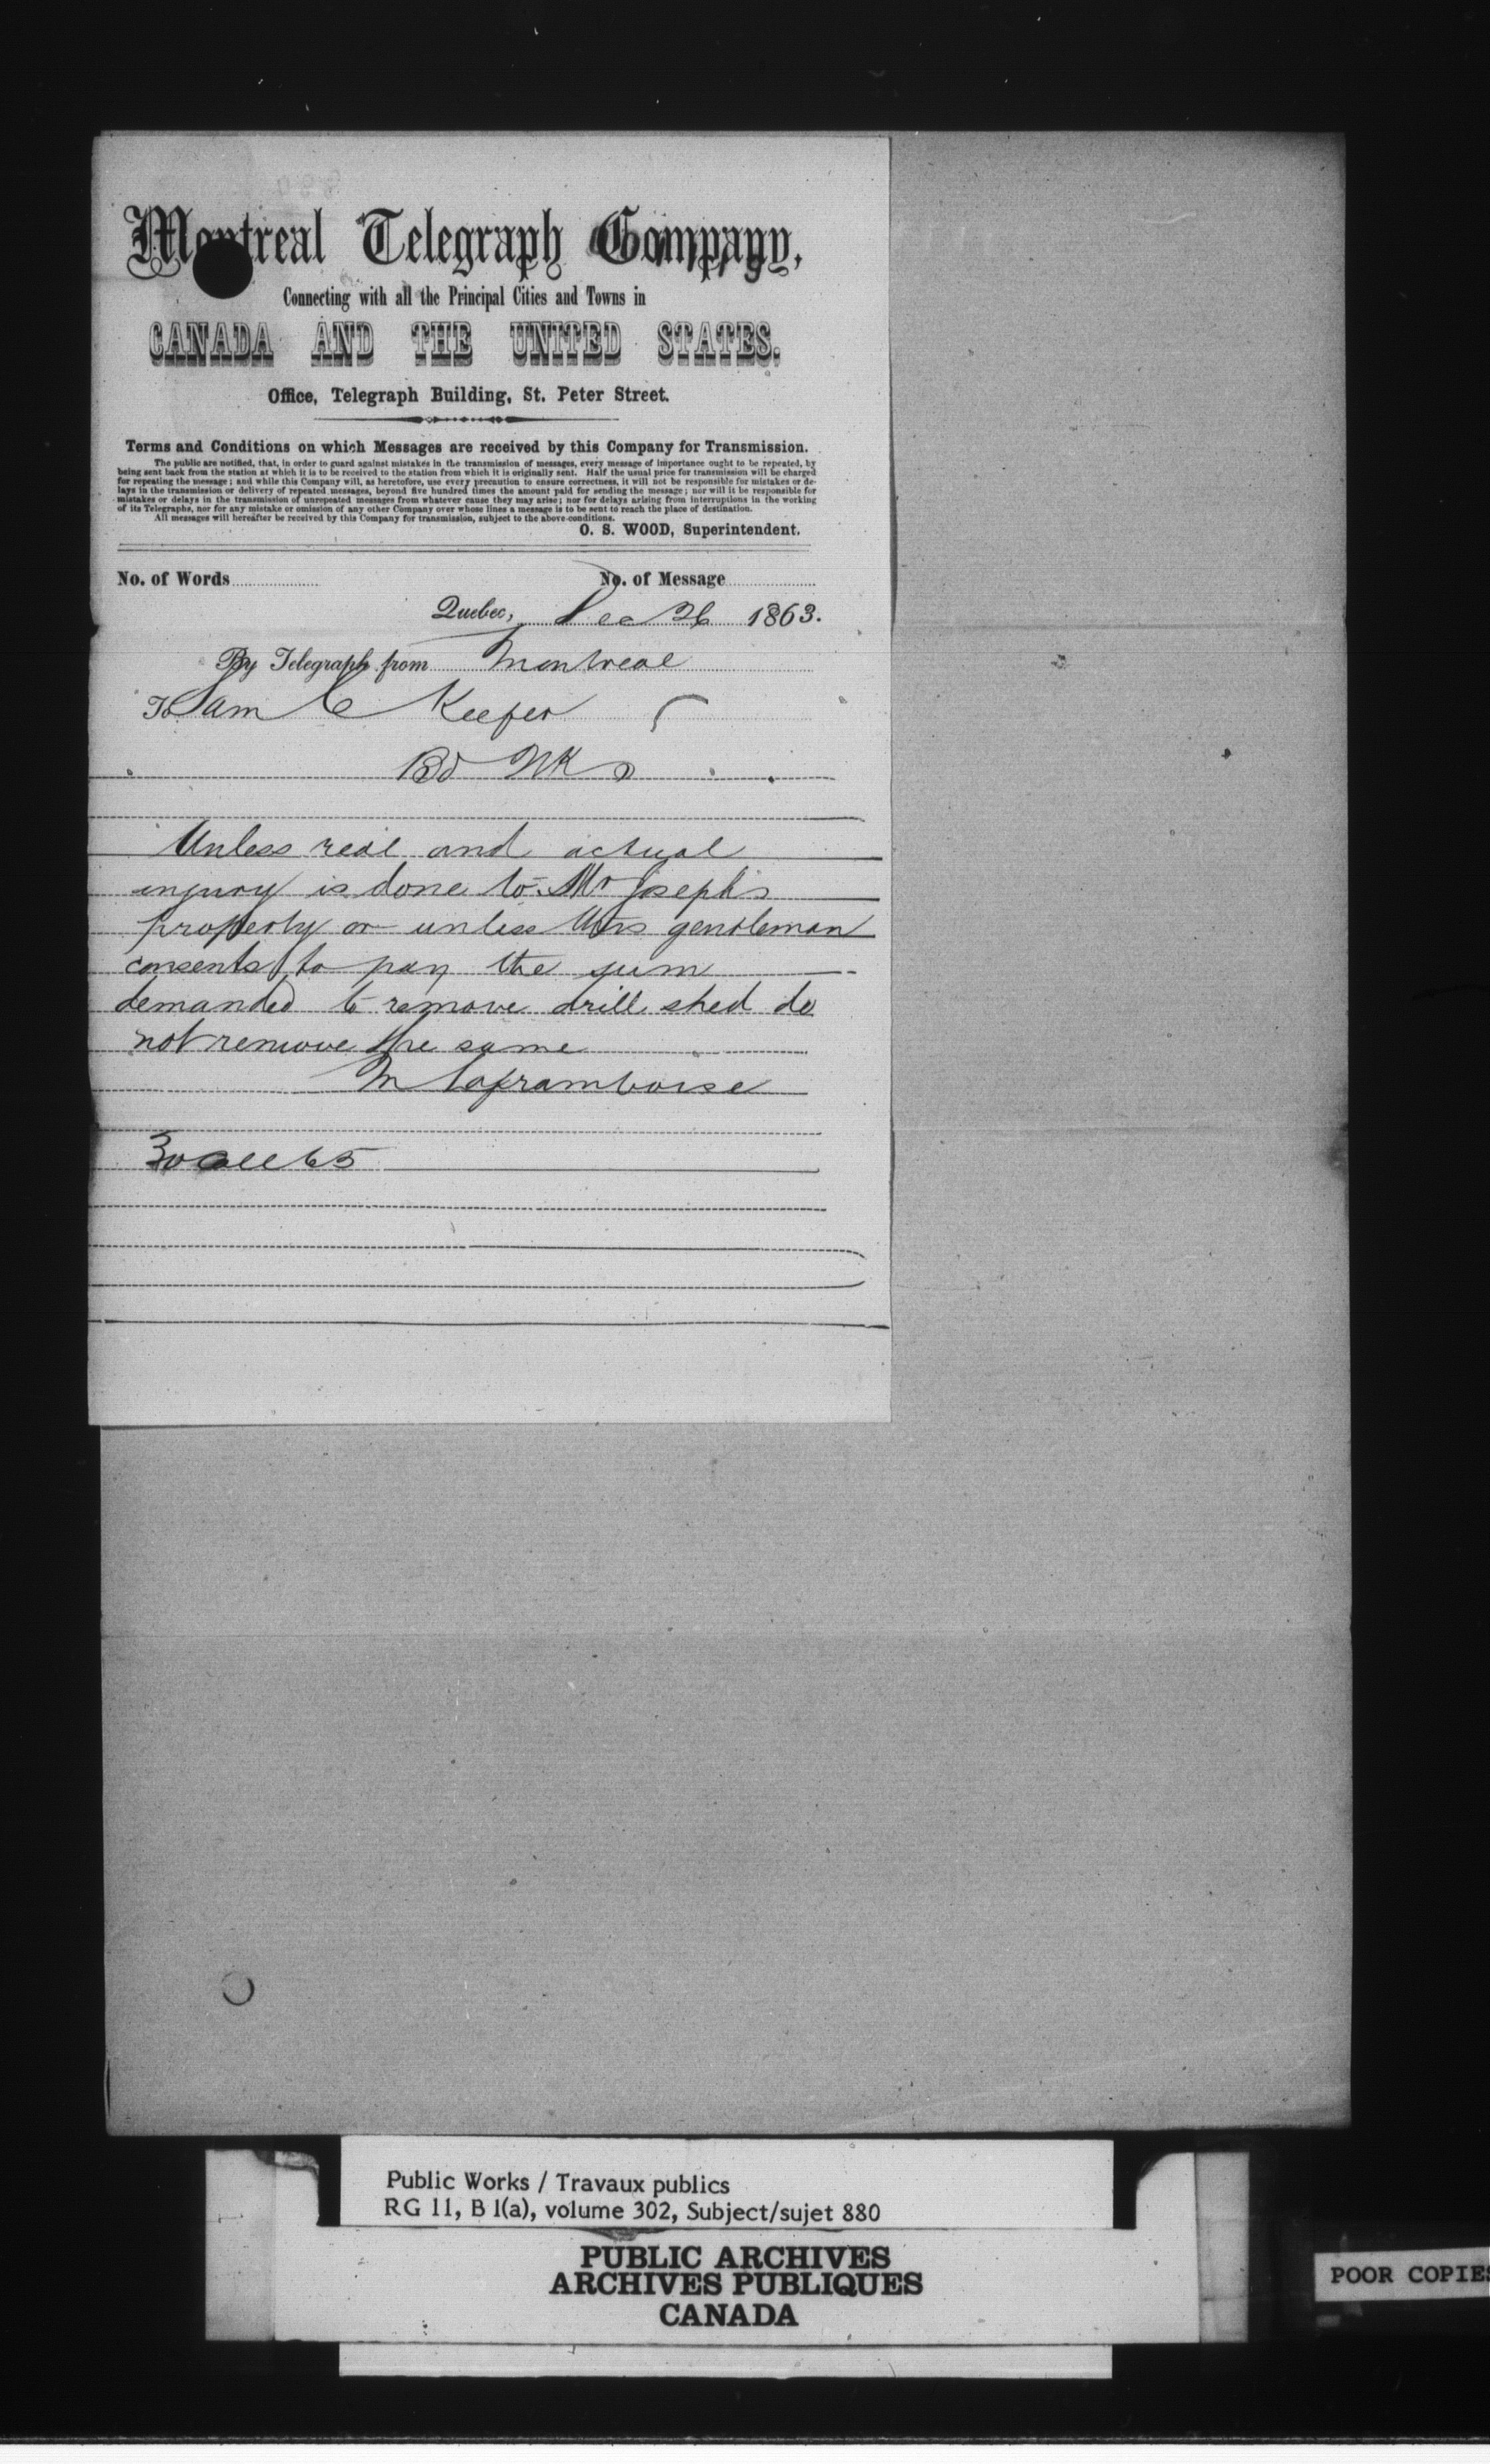 Montreal Telegraph Company,
Connecting with all the Principal Cities and Towns in
CANADA AND THE UNITED STATES.
Office, Telegraph Building, St. Peter Street.
Terms and Conditions on which Messages are received by this Company for Transmission.
The public are notified, that, in order to guard against mistakes in the transmission of messages, every message of importance ought to be repeated, by
being sent back from the station at which it is to be received to the station from which it is originally sent. Half the usual price for transmission will be charged
for repeating the message; and while this Company will, as heretofore, use every precaution to ensure correctness, it will not be responsible for mistakes or de-
lays in the transmission or delivery of repeated messages, beyond five hundred times the amount paid for sending the message; nor will it be responsible for
mistakes or delays in the transmission of unrepeated messages from whatever cause they may arise; nor for delays arising from interruptions in the working
of its Telegraphs, nor for any mistake or omission of any other Company over whose lines a message is to be sent to reach the place of destination.
All messages will hereafter be received by this Company for transmission, subject to the above conditions.
O. S. WOOD, Superintendent.
No. of Words No. of Message
Quebec, Dec 26 1863.
By Telegraph from Montreal
To Saml Keefer
Bd Wks
Unless real and actual
injury is done to Mr Joseph's
property or unless this gentleman
consents to pay the sum
demanded to remove drill shed do
not remove the same
M Laframboise
30 65
Public Works / Travaux publics
RG 11, B 1(a), volume 302, Subject/sujet 880
PUBLIC ARCHIVES
ARCHIVES PUBLIQUES
CANADA
POOR COPIES